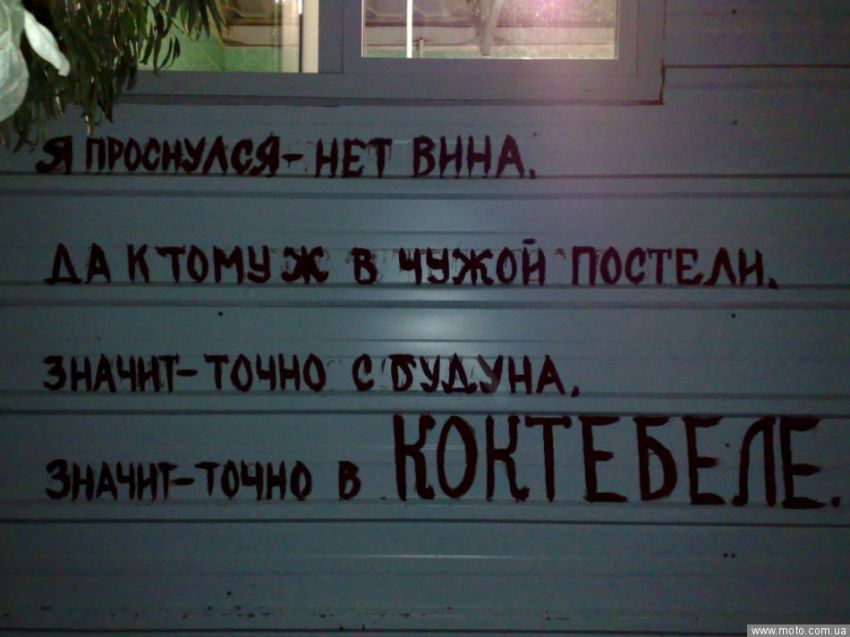 Я ПРОСНУЛСЯ- НЕТ ВИНА.
ДА К ТОМУ Ж В ЧУЖОЙ ПОСТЕЛИ.
ЗНАЧИТ- ТОЧНО С БУДУНА.
ЗНАЧИТ- ТОЧНО В КОКТЕБЕЛЕ.
www.moto.com.ua